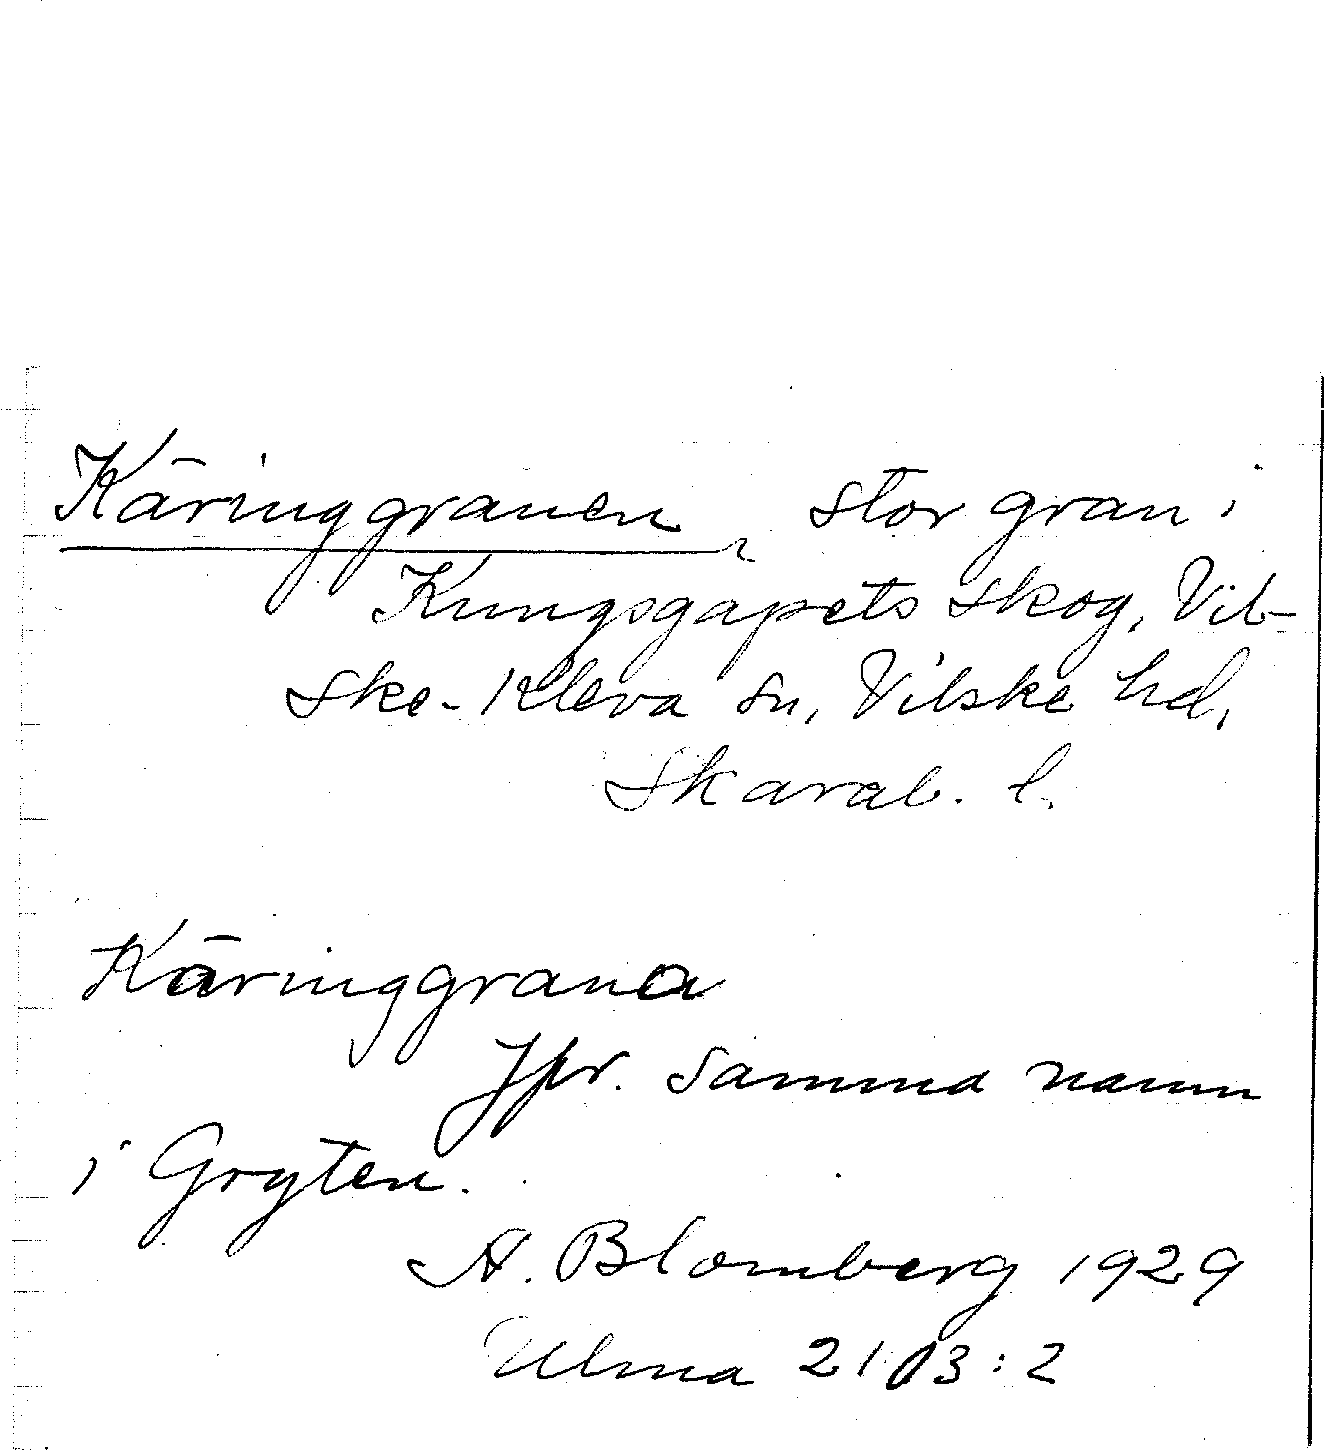 Käringgranen, stor gran i
Kungsgapets skog, Vil-
ske-Kleva sn, Vilske hd,
Skarab. l.
Käringgrana
Jfr. samma namn
i Gryten.
A. Blomberg 1929
Ulma 2103:2